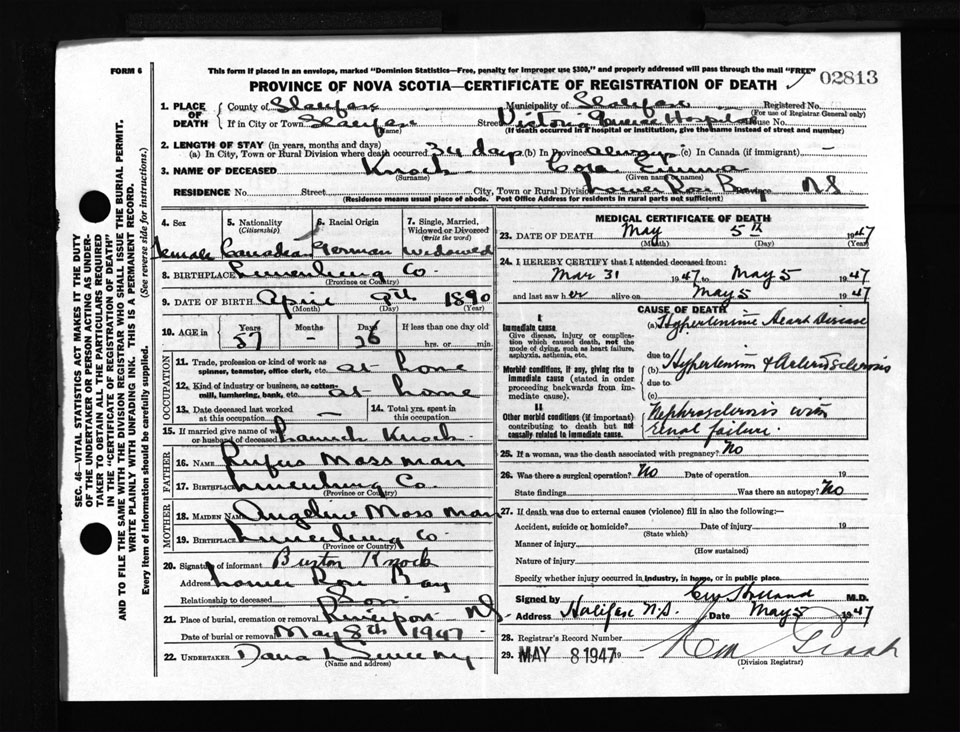 FORM 6
This form if placed in an envelope, marked "Dominion Statistics—Free, penalty for improper use $300," and properly addressed will pass through the mail "FREE"
PROVINCE OF NOVA SCOTIA—CERTIFICATE OF REGISTRATION OF DEATH
02813
SEC. 46—VITAL STATISTICS ACT MAKES IT THE DUTY
OF THE UNDERTAKER OR PERSON ACTING AS UNDER-
TAKER TO OBTAIN ALL THE PARTICULARS REQUIRED
IN THE "CERTIFICATE OF REGISTRATION OF DEATH"
AND TO FILE THE SAME WITH THE DIVISION REGISTRAR WHO SHALL ISSUE THE BURIAL PERMIT.
WRITE PLAINLY WITH UNFADING INK. THIS IS A PERMANENT RECORD.
Every item of information should be carefully supplied. (See reverse side for instructions.)
1. PLACE OF DEATH
County of Halifax Municipality of Halifax Registered No.
(For use of Registrar General only)
If in City or Town Halifax Street Victoria General Hospital House No.
(Name) (If death occurred in a hospital or institution, give the name instead of street and number)
2. LENGTH OF STAY (in years, months and days)
(a) In City, Town or Rural Division where death occurred 34 days (b) In Province always (c) In Canada (if immigrant) —
3. NAME OF DECEASED Knock Cora Emma
(Surname) (Given name or names)
RESIDENCE No. Street City, Town or Rural Division Lower Rose Bay Province NS
(Residence means usual place of abode. Post Office Address for residents in rural parts not sufficient)
4. Sex Female
5. Nationality (Citizenship) Canadian
6. Racial Origin German
7. Single, Married, Widowed or Divorced (Write the word) Widowed
8. BIRTHPLACE Lunenburg Co.
(Province or Country)
9. DATE OF BIRTH April 9th 1890
(Month) (Day) (Year)
10. AGE in Years 57 Months — Days 26 If less than one day old
hrs. or min.
11. Trade, profession or kind of work as spinner, teamster, office clerk, etc. at home
12. Kind of industry or business, as cotton-mill, lumbering, bank, etc. at home
13. Date deceased last worked at this occupation —
14. Total yrs. spent in this occupation
15. If married give name of wife or husband of deceased Knock
FATHER
16. NAME Rufus Mossman
17. BIRTHPLACE Lunenburg Co.
(Province or Country)
MOTHER
18. MAIDEN NAME Angeline Mossman
19. BIRTHPLACE Lunenburg Co
(Province or Country)
20. Signature of informant Burton Knock
Address Lower Rose Bay
Relationship to deceased Son
21. Place of burial, cremation or removal Riverport NS.
Date of burial or removal May 8th 1947
22. UNDERTAKER Dana L Sweeny
(Name and address)
MEDICAL CERTIFICATE OF DEATH
23. DATE OF DEATH May 5th 1947
(Month) (Day) (Year)
24. I HEREBY CERTIFY that I attended deceased from:
Mar 31 1947 to May 5 1947
and last saw her alive on May 5 1947
CAUSE OF DEATH
I
Immediate cause.
Give disease, injury or complication which caused death, not the mode of dying, such as heart failure, asphyxia, asthenia, etc.
(a) Hypertensive Heart Disease
due to
Morbid conditions, if any, giving rise to immediate cause (stated in order proceeding backwards from immediate cause).
(b) Hypertension & Arteriosclerosis
due to
(c)
II
Other morbid conditions (if important) contributing to death but not causally related to immediate cause.
Nephrosclerosis with
renal failure.
25. If a woman, was the death associated with pregnancy? No
26. Was there a surgical operation? No Date of operation 19
State findings Was there an autopsy? No
27. If death was due to external causes (violence) fill in also the following:—
Accident, suicide or homicide? Date of injury 19
(State which)
Manner of injury
(How sustained)
Nature of injury
Specify whether injury occurred in industry, in home, or in public place.
Signed by Holland M.D.
Address Halifax N.S. Date May 5 1947
28. Registrar's Record Number
29. MAY 8 1947 19
(Division Registrar)